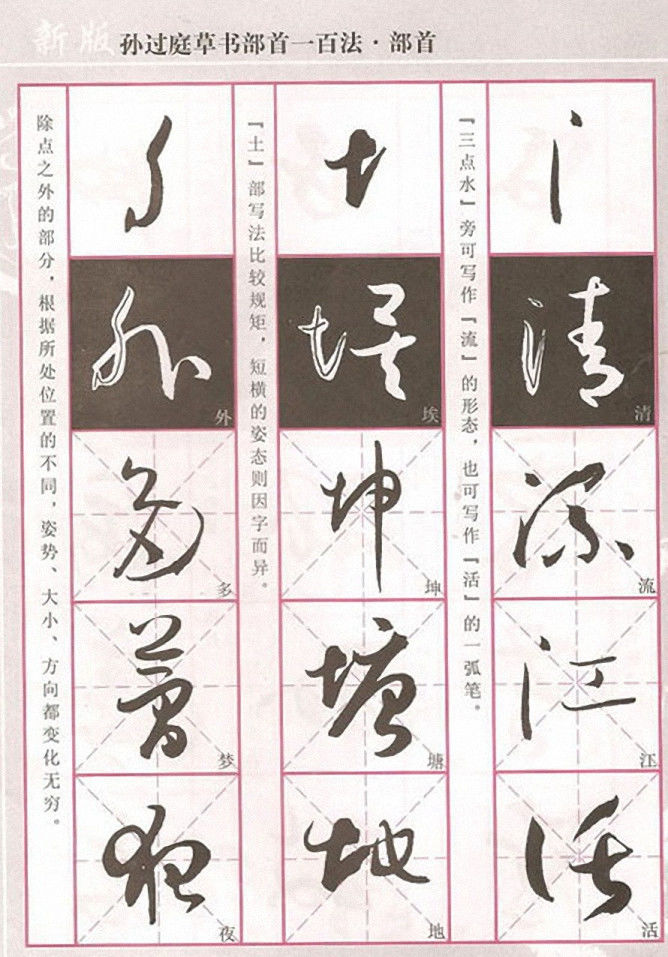 新版 孙过庭草书部首一百法·部首
『三点水』旁可写作『流』的形态，也可写作『活』的一弧笔。
氵
清
清
流
流
江
江
活
活
『土』部写法比较规矩，短横的姿态则因字而异。
土
埃
埃
坤
坤
塘
塘
地
地
除点之外的部分，根据所处位置的不同，姿势、大小、方向都变化无穷。
夕
外
外
多
多
梦
梦
夜
夜